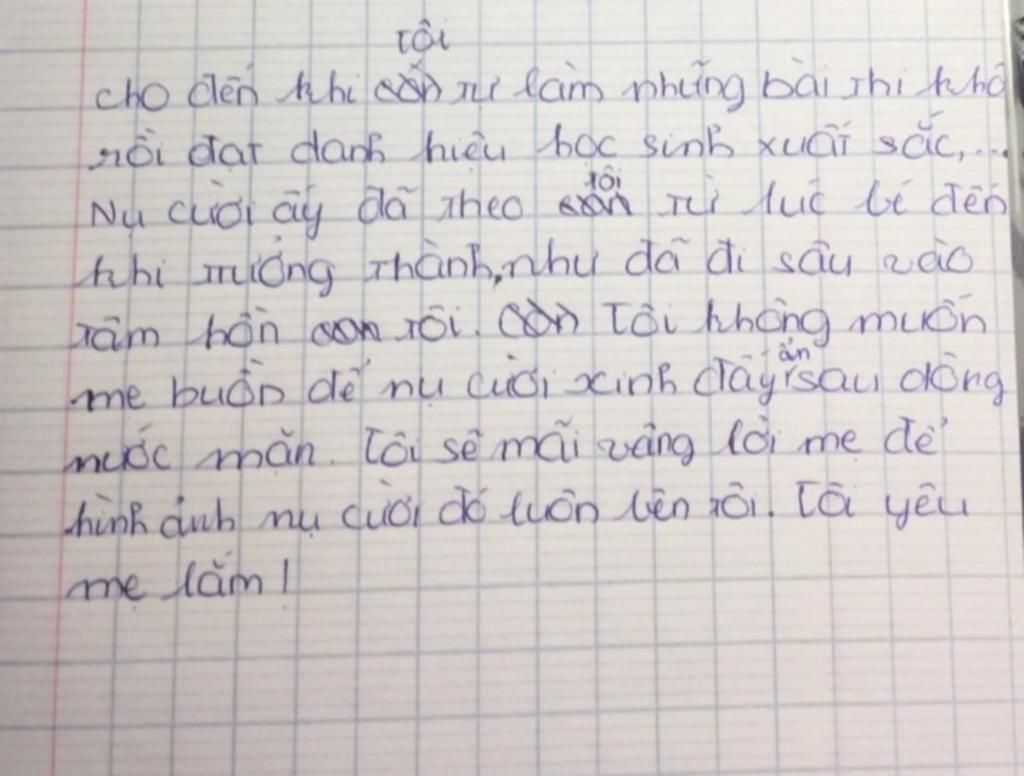 tôi
cho đến khi còn từ làm những bài thi khó
rồi đạt danh hiệu học sinh xuất sắc,...
tôi
Nụ cười ấy đã theo con từ lúc bé đến
khi trưởng thành, như đã đi sâu vào
tâm hồn con tôi. Còn Tôi không muốn
ẩn
mẹ buồn để nụ cười xinh đấy sau dòng
nước mặn. Tôi sẽ mãi vâng lời mẹ để
hình ảnh nụ cười đó luôn bên tôi. Tôi yêu
mẹ lắm!